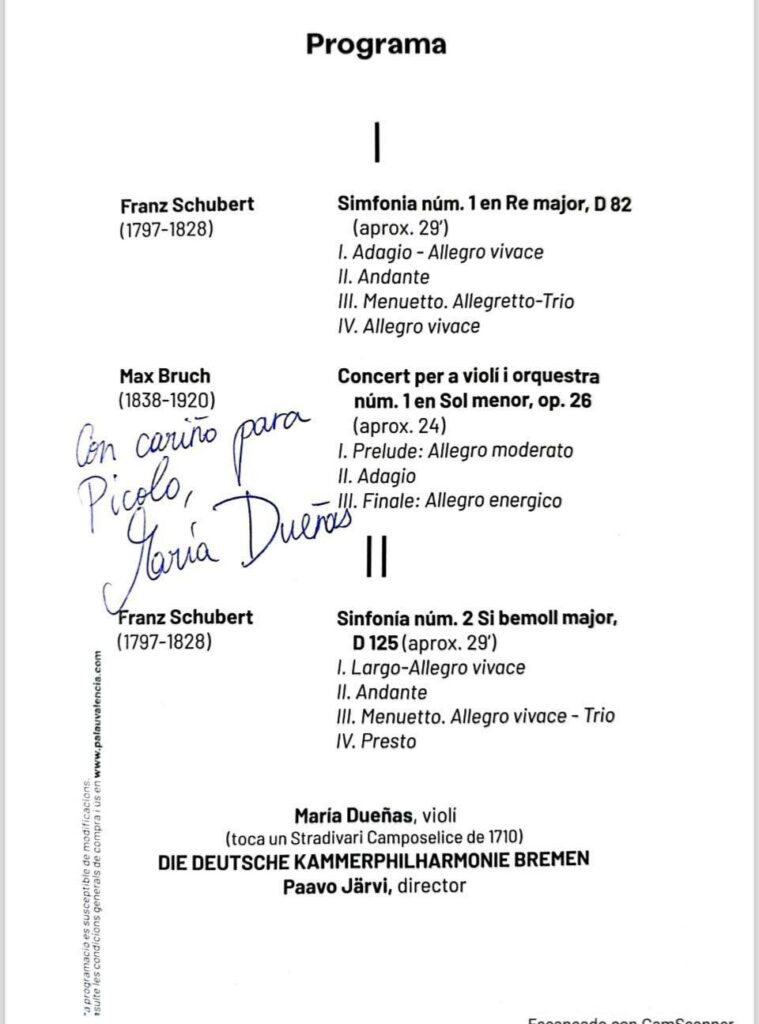 Programa
I
Franz Schubert
(1797-1828)
Simfonia núm. 1 en Re major, D 82
(aprox. 29')
I. Adagio - Allegro vivace
II. Andante
III. Menuetto. Allegretto-Trio
IV. Allegro vivace
Max Bruch
(1838-1920)
Concert per a violí i orquestra
núm. 1 en Sol menor, op. 26
(aprox. 24)
I. Prelude: Allegro moderato
II. Adagio
III. Finale: Allegro energico
Con cariño para
Picolo,
María Dueñas
II
Franz Schubert
(1797-1828)
Sinfonía núm. 2 Si bemoll major,
D 125 (aprox. 29')
I. Largo-Allegro vivace
II. Andante
III. Menuetto. Allegro vivace - Trio
IV. Presto
María Dueñas, violí
(toca un Stradivari Camposelice de 1710)
DIE DEUTSCHE KAMMERPHILHARMONIE BREMEN
Paavo Järvi, director
a programació és susceptible de modificacions.
les condicions generals de compra i ús en www.palauvalencia.com
Escaneado con CamScanner